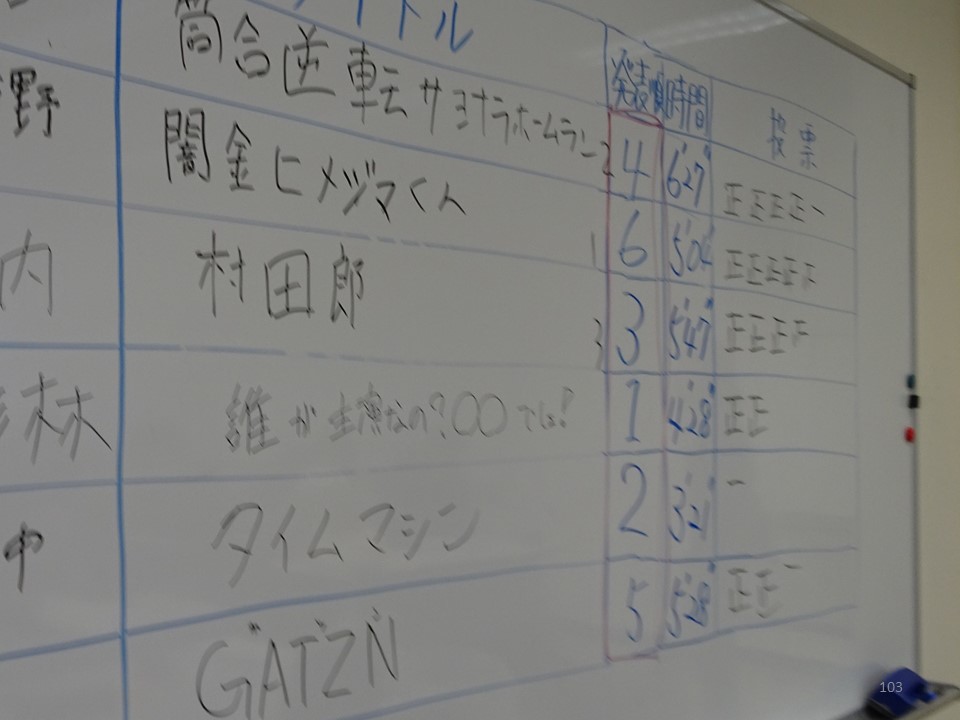 イトル 発表順 時間 投票
筒合逆転サヨナラホームラン 2 4 6'27" 正正正正一
野 闇金ヒメヅマくん 1 6 5'04" 正正正正
内 村田郎 3 3 5'47" 正正正
林 誰が なの?〇〇では? 1 4'28" 正正
タイムマシン 2 3'21" 一
中 GATZN 5 5'28" 正正一
103